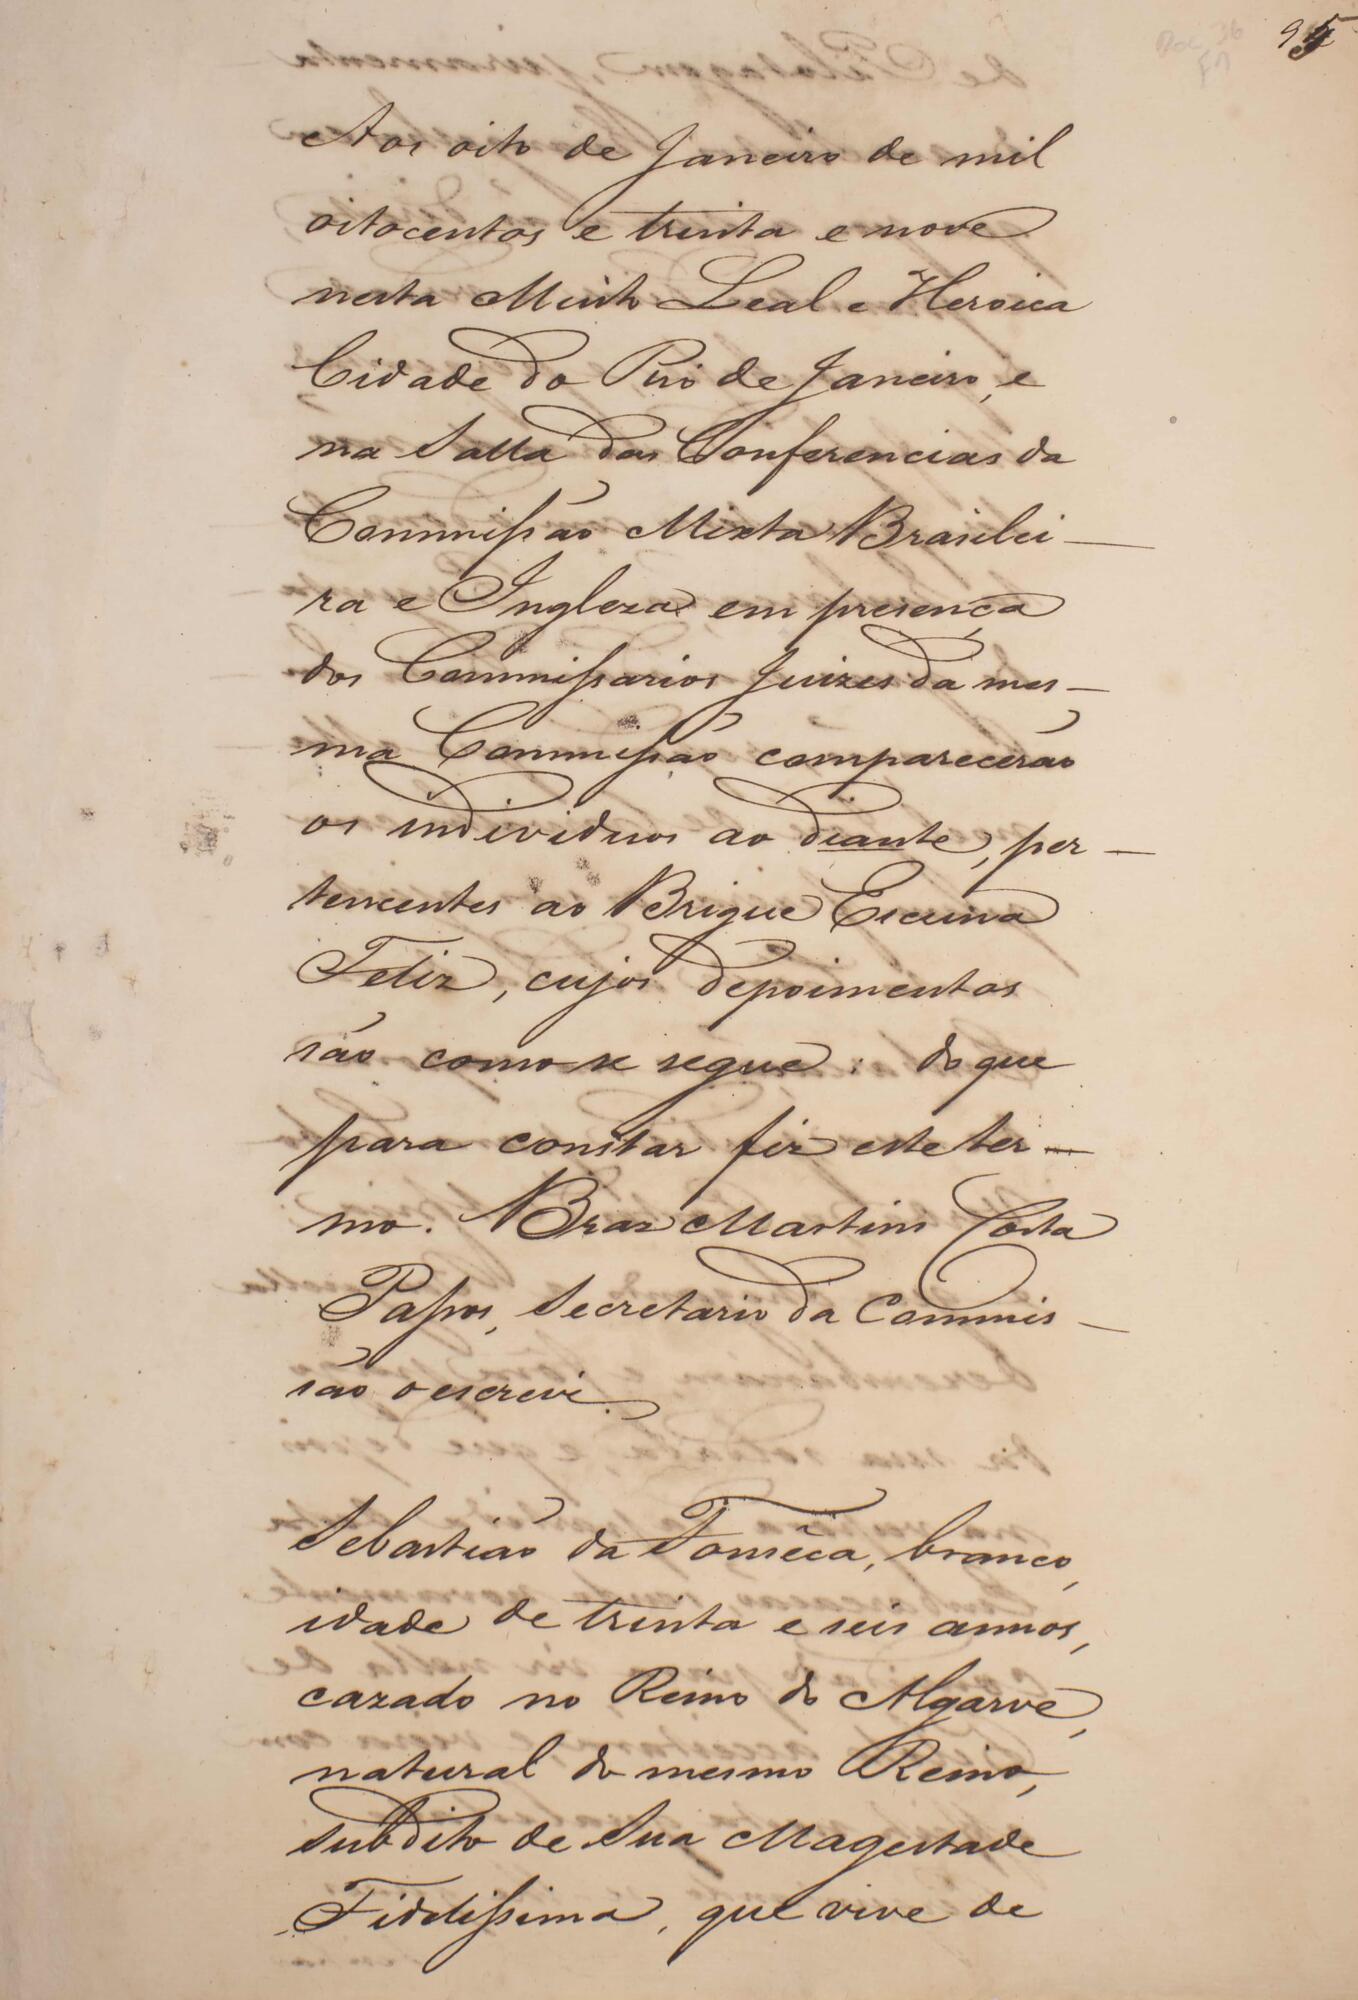 Doc 36
Aos oito de Janeiro de mil
oitocentos e trinta e nove
nesta Muito Leal e Heroica
Cidade do Rio de Janeiro, e
na Salla das Conferencias da
Commissão Mixta Brasilei-
ra e Ingleza em presença
dos Commissarios Juizes da mes-
ma Commissão comparecerão
os individuos ao diante, per-
tencentes ao Brigue Escuna
Feliz, cujos depoimentos
são como se segue: do que
para constar fiz este ter-
mo. Braz Martins Costa
Passos, Secretario da Commis-
são o escrevi.
Sebastião da Fonsêca, branco,
idade de trinta e seis annos,
cazado no Reino do Algarve,
natural do mesmo Reino,
subdito de Sua Magestade
Fidelissima, que vive de